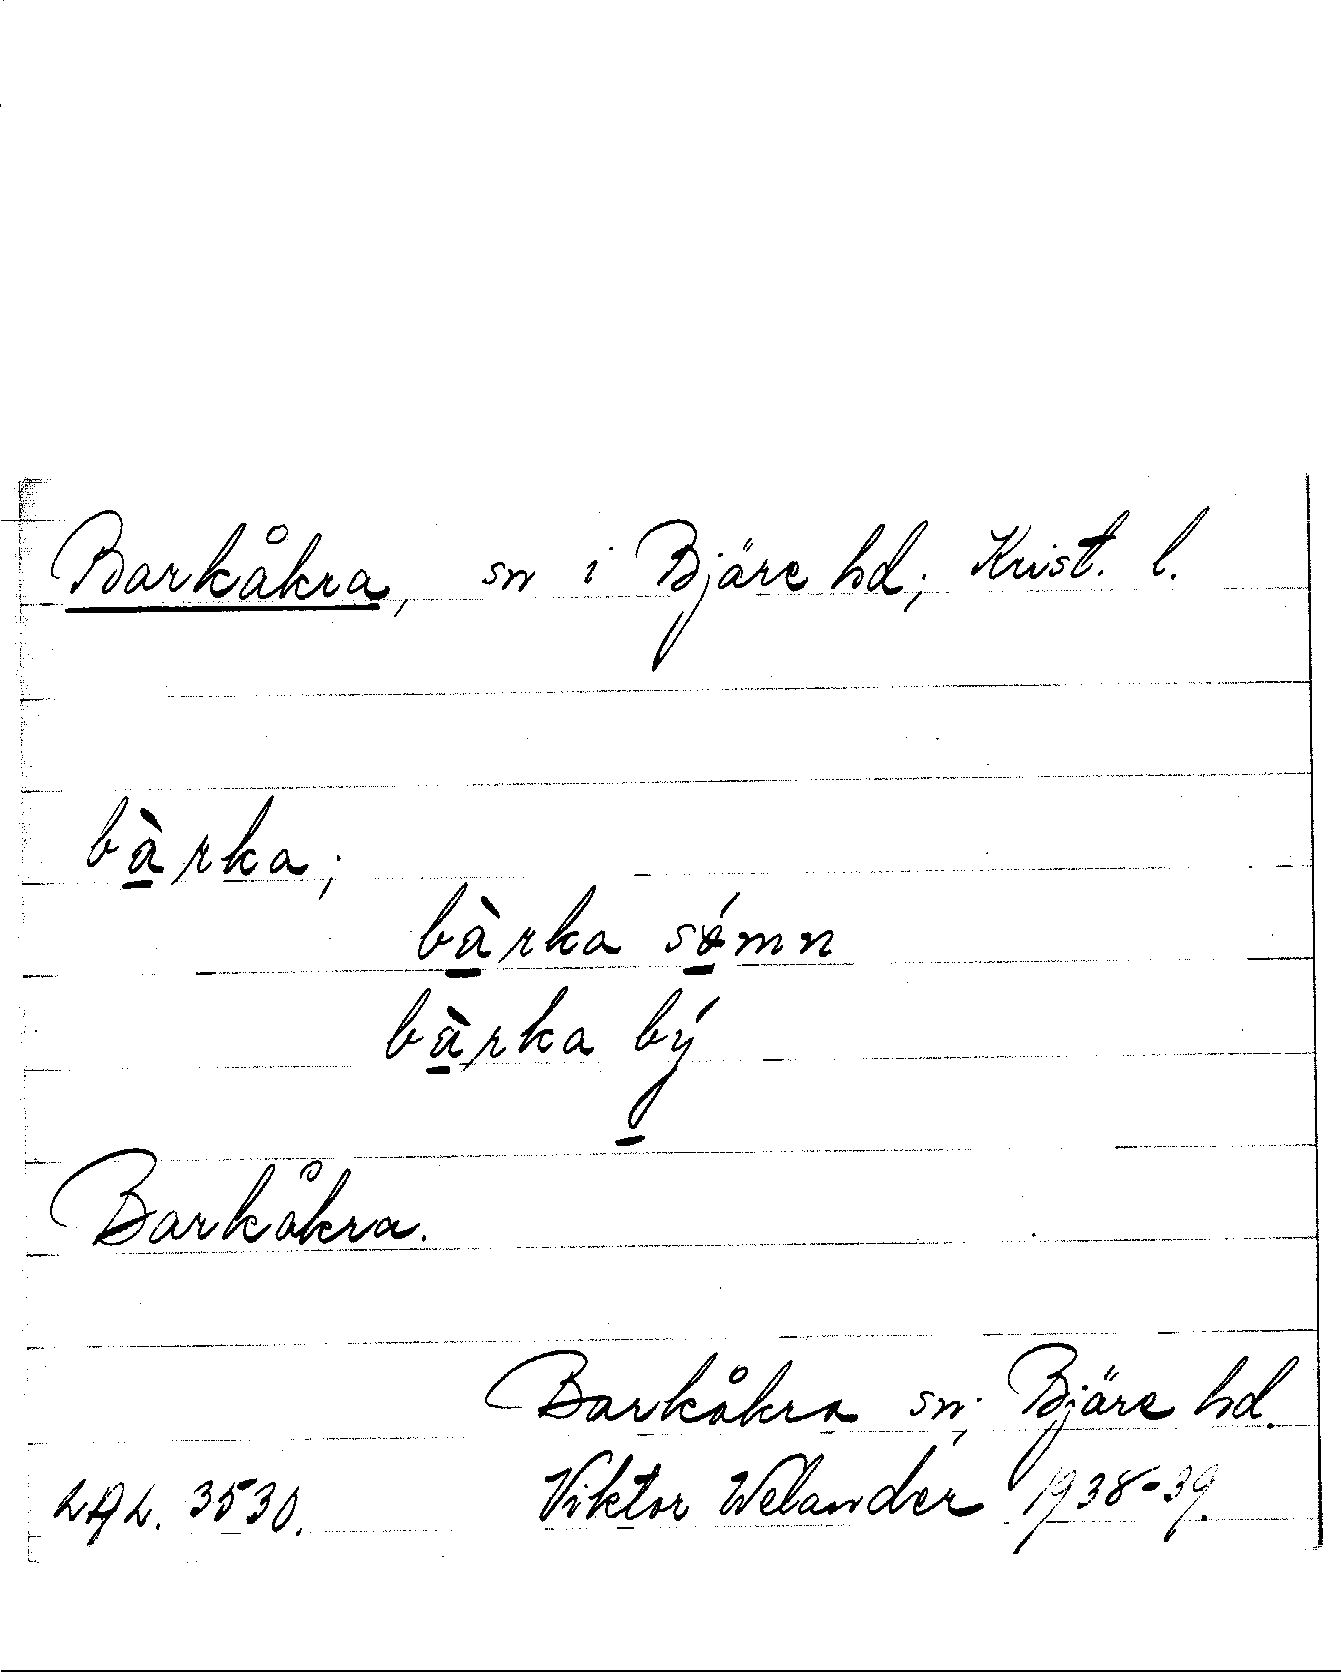 Barkåkra, sn i Bjäre hd; Krist. l.
bàrka;
bàrka sǿmn
bàrka bý
Barkåkra.
Barkåkra sn; Bjäre hd.
LAL. 3530. Viktor Welander 1938-39.